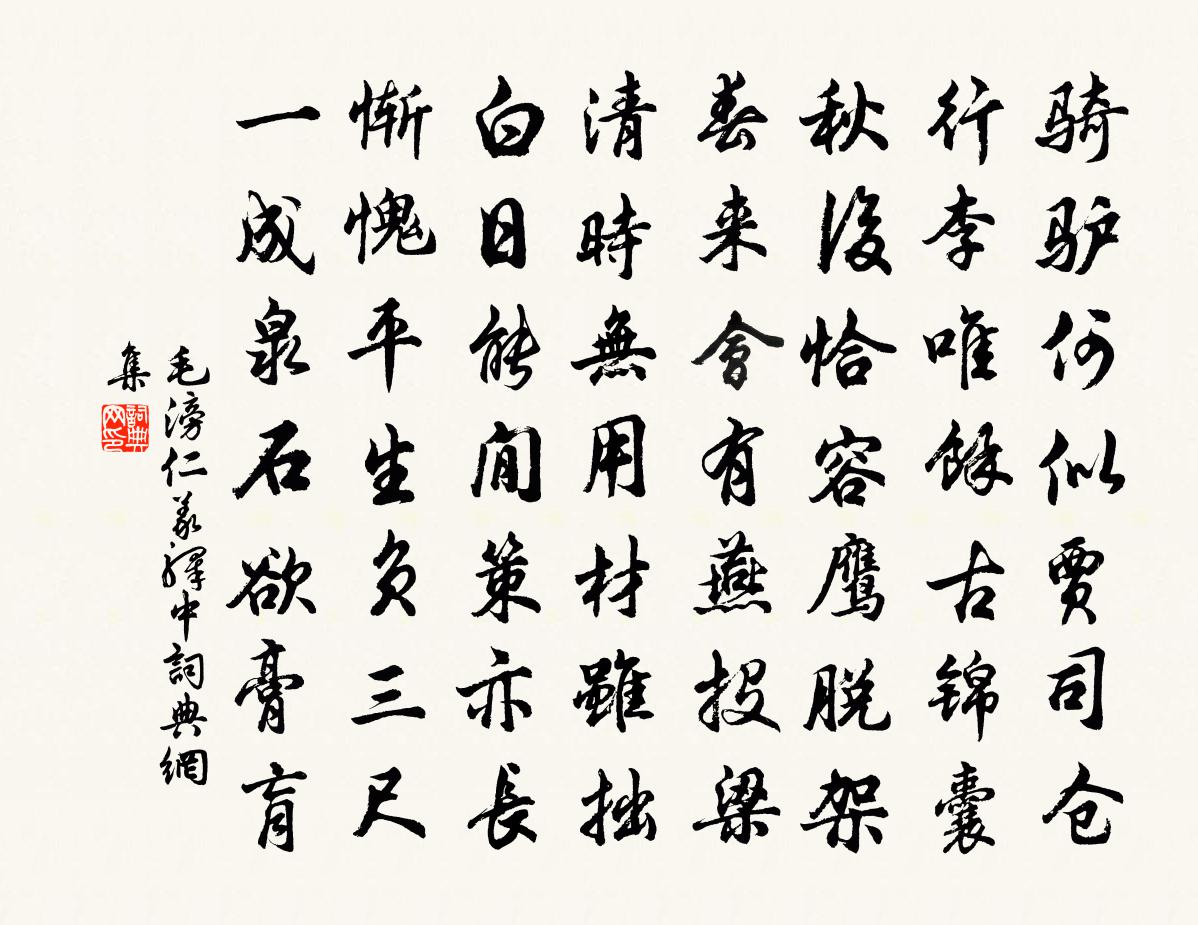 骑驴何似贾司仓
行李唯餘古锦囊
秋後恰容鹰脱架
春来會有燕投梁
清時無用材雖拙
白日能閒策亦長
惭愧平生负三尺
一成泉石欲膏肓
毛滂仁義驛中詞典網
集
詞典
网印